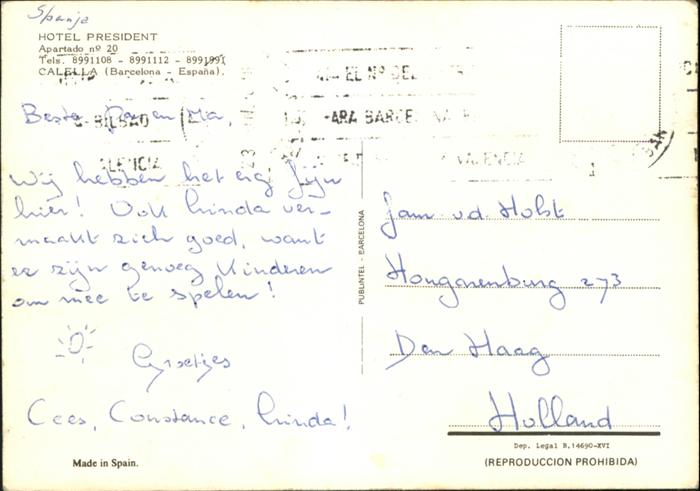 Spanje
HOTEL PRESIDENT
Apartado nº 20
Tels. 8991108 - 8991112 - 8991991
CALELLA (Barcelona - España).
EL Nº DEL
BILBAO
ARA BARCEL
VALENCIA
Beste Pa en Ma,
Wij hebben het erg fijn
hier! Ook Linda ver-
maakt zich goed, want
er zijn genoeg kinderen
om mee te spelen!
Groetjes
Cees, Constance, Linda!
Made in Spain.
PUBLINTEL - BARCELONA
Fam. v.d. Holst
Hongarenburg 273
Den Haag
Holland
Dep. Legal B.14690-XVI
(REPRODUCCION PROHIBIDA)